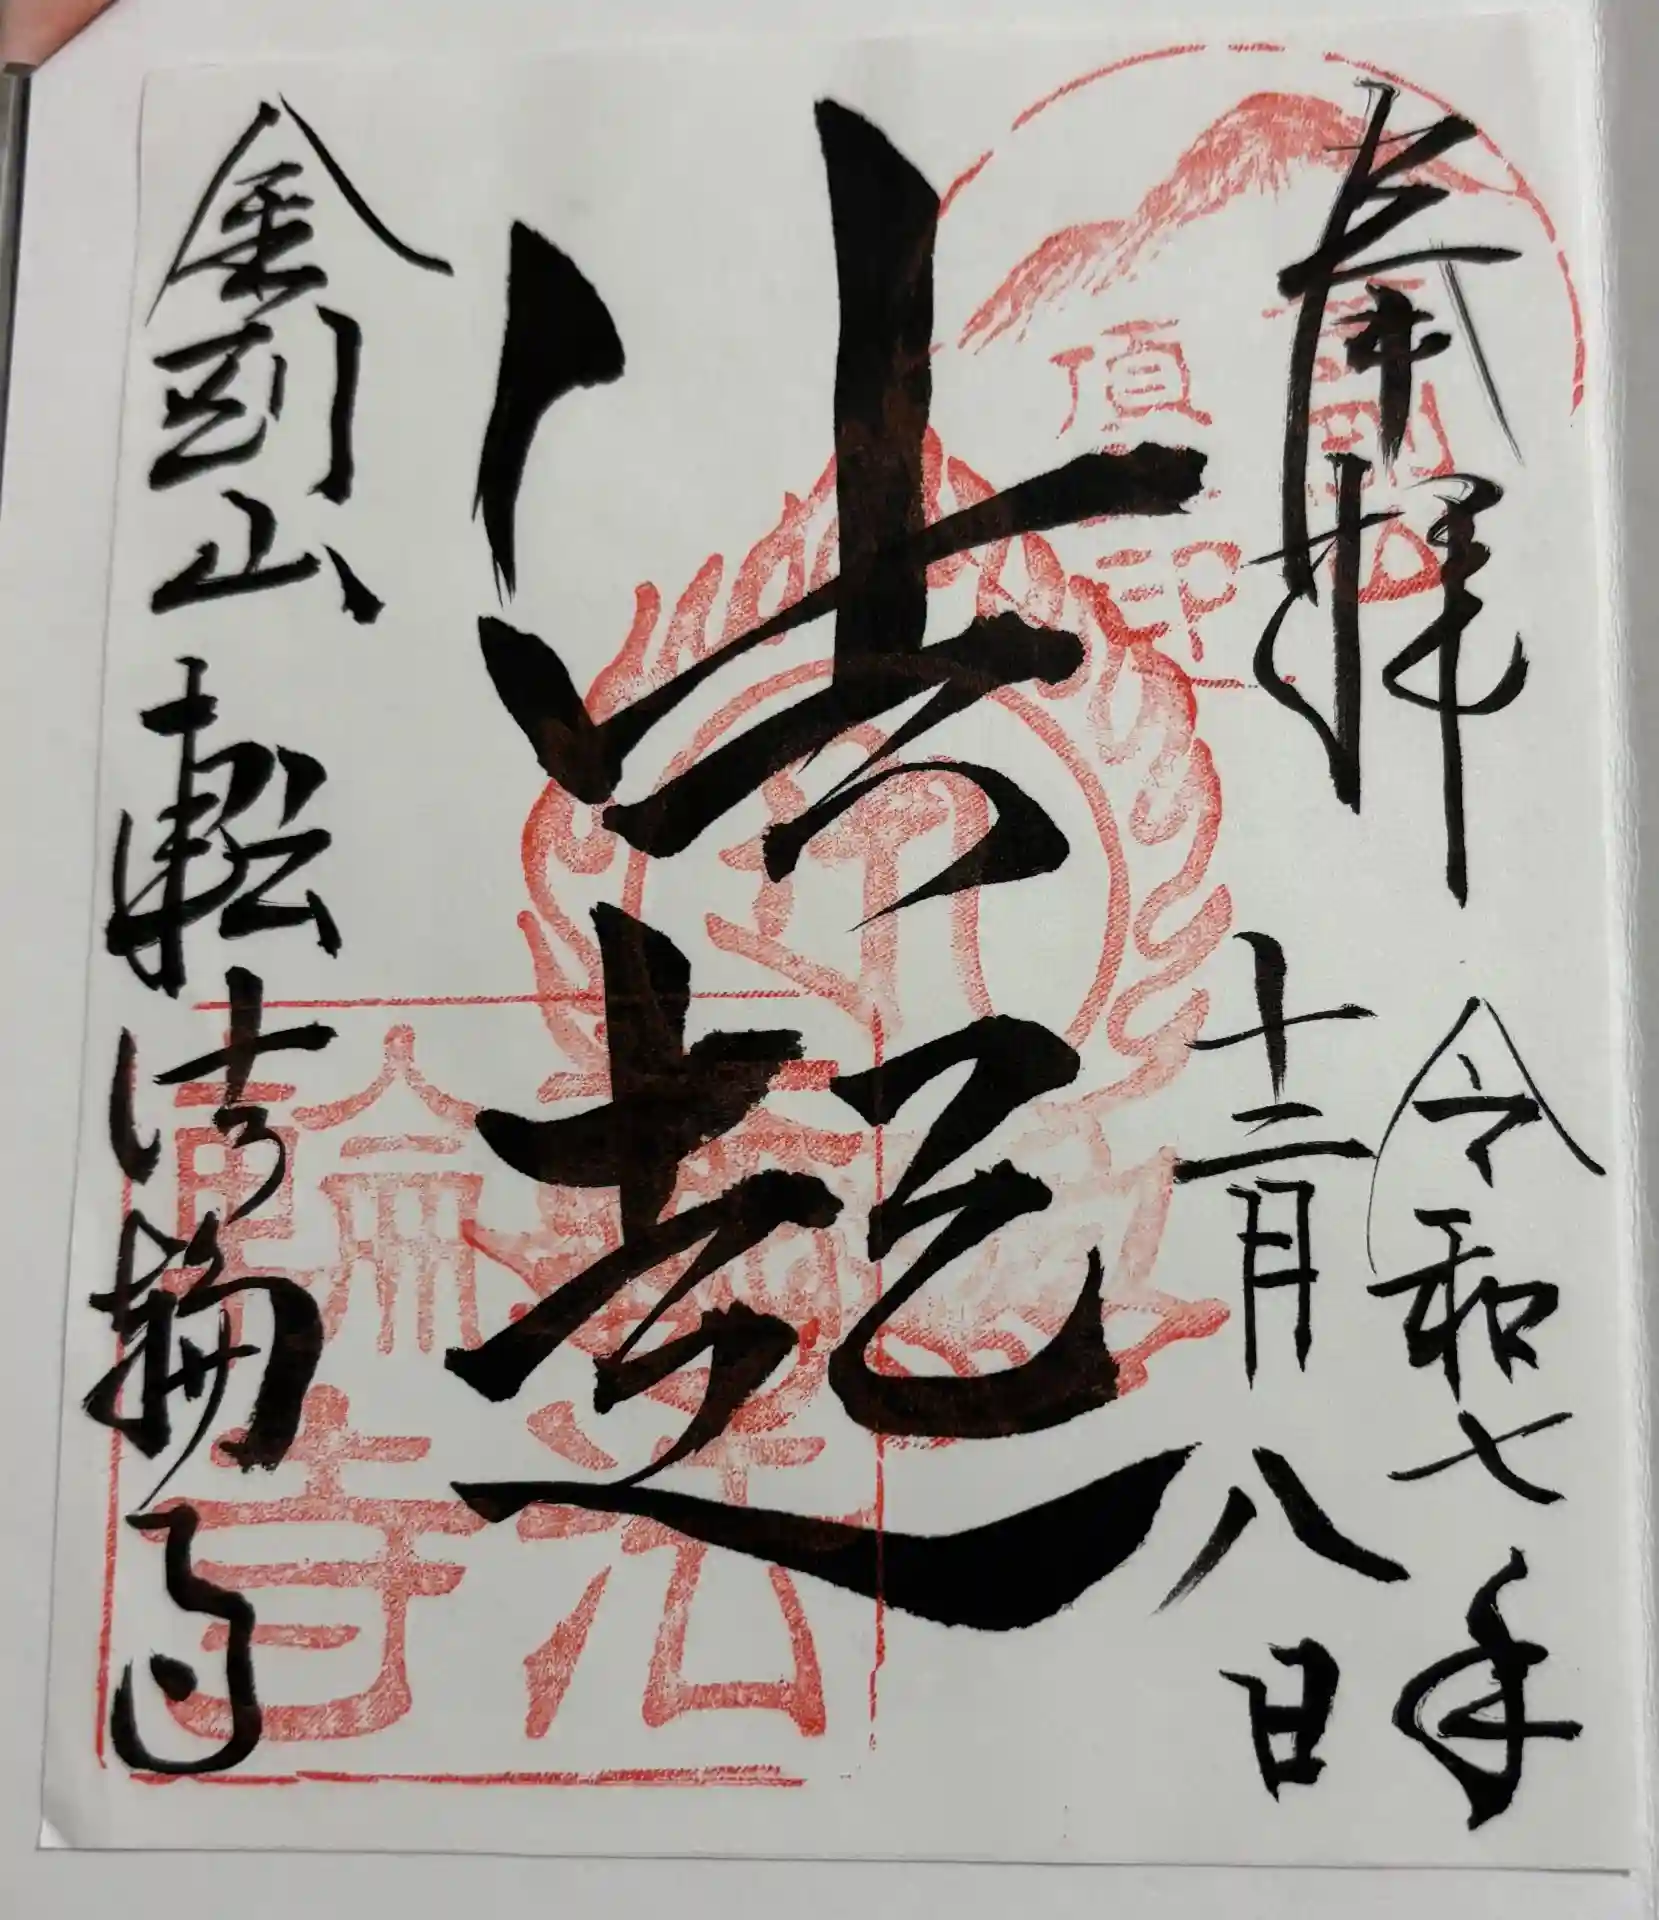 奉拝
令和七年
十二月八日
法起
金剛山転法輪寺
金剛山
頂
印
轉法
輪寺